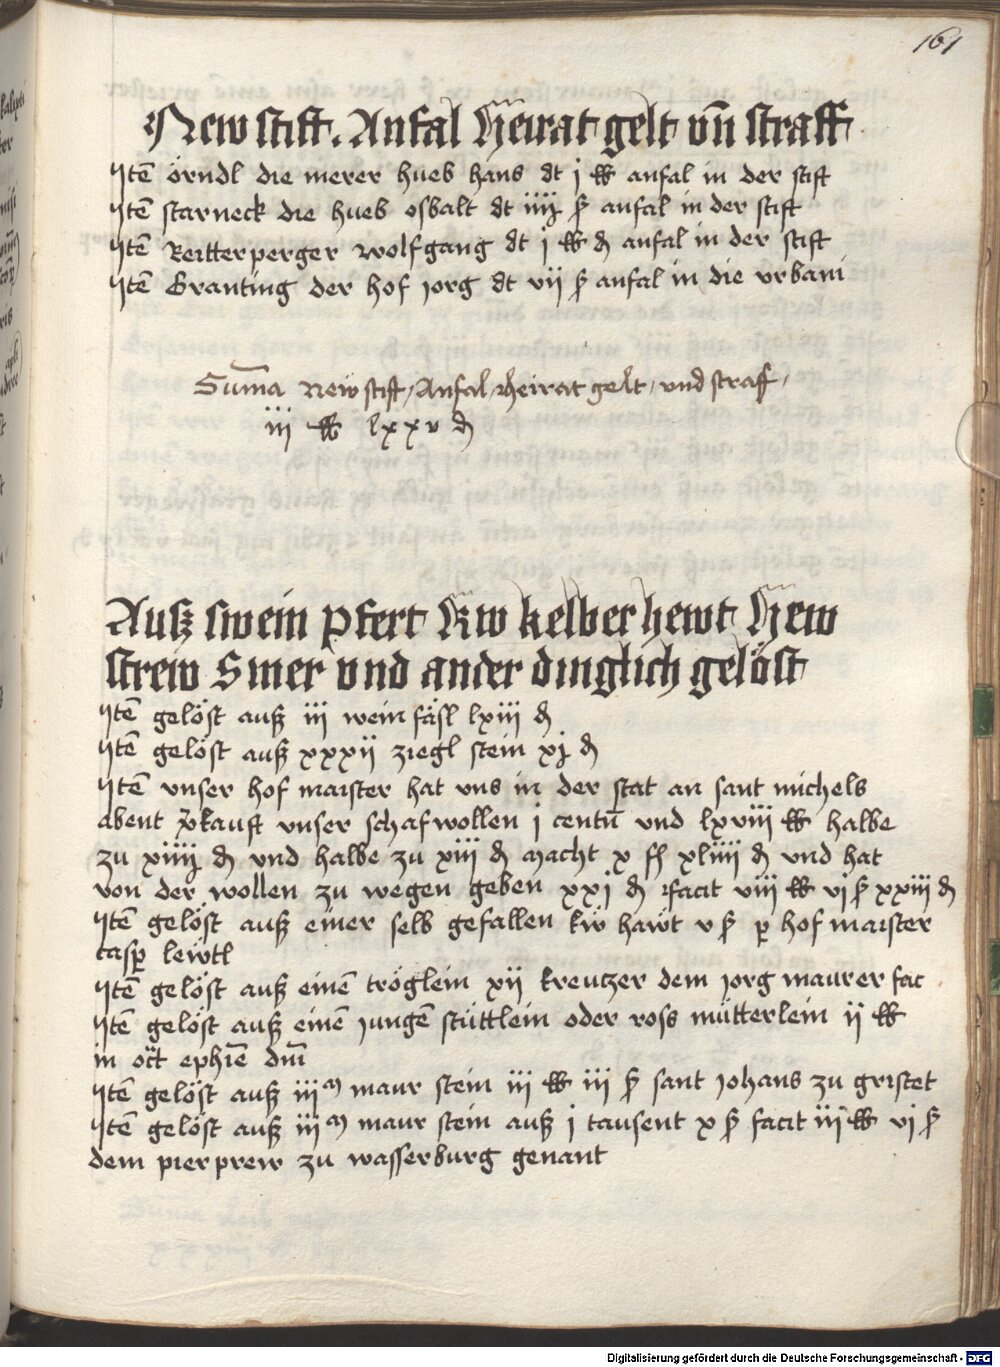 161
New stift. Anfal Heirat gelt vn̄ straff
Itē örndl die merer hueb hans dt j ℔ anfal in der stift
Itē starneck die hueb osbalt dt iiij ß anfal in der stift
Itē Reitterperger wolfgang dt j ℔ ₰ anfal in der stift
Itē Granting der hof jorg dt vij ß anfal in die vrbani
Sum̄a New stift / Anfal / heirat gelt / vnd straf /
iij ℔ lxxv ₰
Auß swein pfert Kw kelber hewt Hew
strew Smer vnd ander dinglich gelöst
Itē gelöst auß iij wein fäsl lxiii ₰
Itē gelöst auß xxxij ziegl stein xj ₰
Itē vnser hof maister hat vns in der stat an sant michels
abent v̓kauft vnser schafwollen j centn̄ vnd lxviii ℔ halbe
zu xiiij ₰ vnd halbe zu xiii ₰ macht x ſꝭ xliiii ₰ vnd hat
von der wollen zu wegen geben xxj ₰ facit viii ℔ vj ß xxiii ₰
Itē gelöst auß einer selb gefallen kẅ hawt v ß ꝑ hof maister
casꝑ lewtl
Itē gelöst auß einē tröglein xij kreutzer dem jorg maurer fac
Itē gelöst auß einē jungē stüttlein oder ross mütterlein ij ℔
in oct̄ ephīe dn̄i
Itē gelöst auß iii ͫ maur stein iii ℔ iii ß sant johans zu gristet
Itē gelöst auß iii ͫ maur stein auß j tausent x ß facit iii ℔ vj ß
dem pierprew zu wasserburg genant
Digitalisierung gefördert durch die Deutsche Forschungsgemeinschaft - DFG